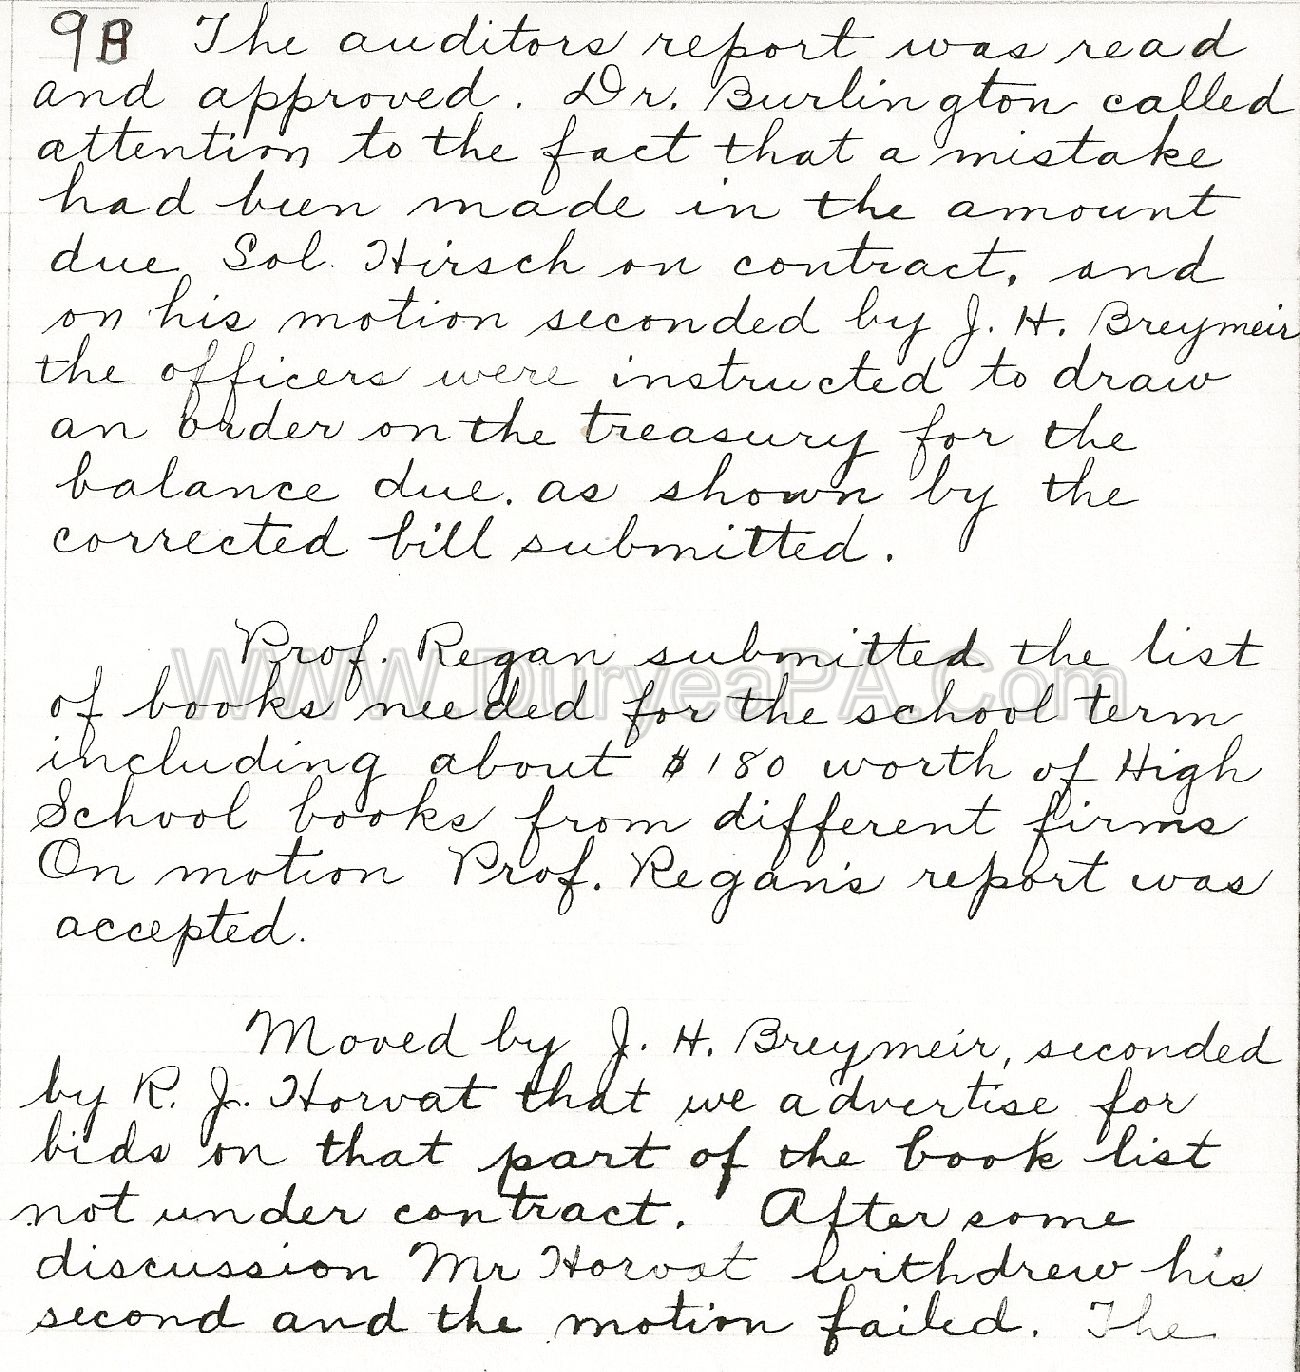 98 The auditors report was read
and approved. Dr. Burlington called
attention to the fact that a mistake
had been made in the amount
due Sol. Hirsch on contract, and
on his motion seconded by J. H. Breymeir
the officers were instructed to draw
an order on the treasury for the
balance due. as shown by the
corrected bill submitted.
Prof. Regan submitted the list
WWW.DuryeaPA.Com
of books needed for the school term
including about $180 worth of High
School books from different firms
On motion Prof. Regan's report was
accepted.
Moved by J. H. Breymeir, seconded
by R. J. Horvat that we advertise for
bids on that part of the book list
not under contract. After some
discussion Mr Horvat withdrew his
second and the motion failed. The